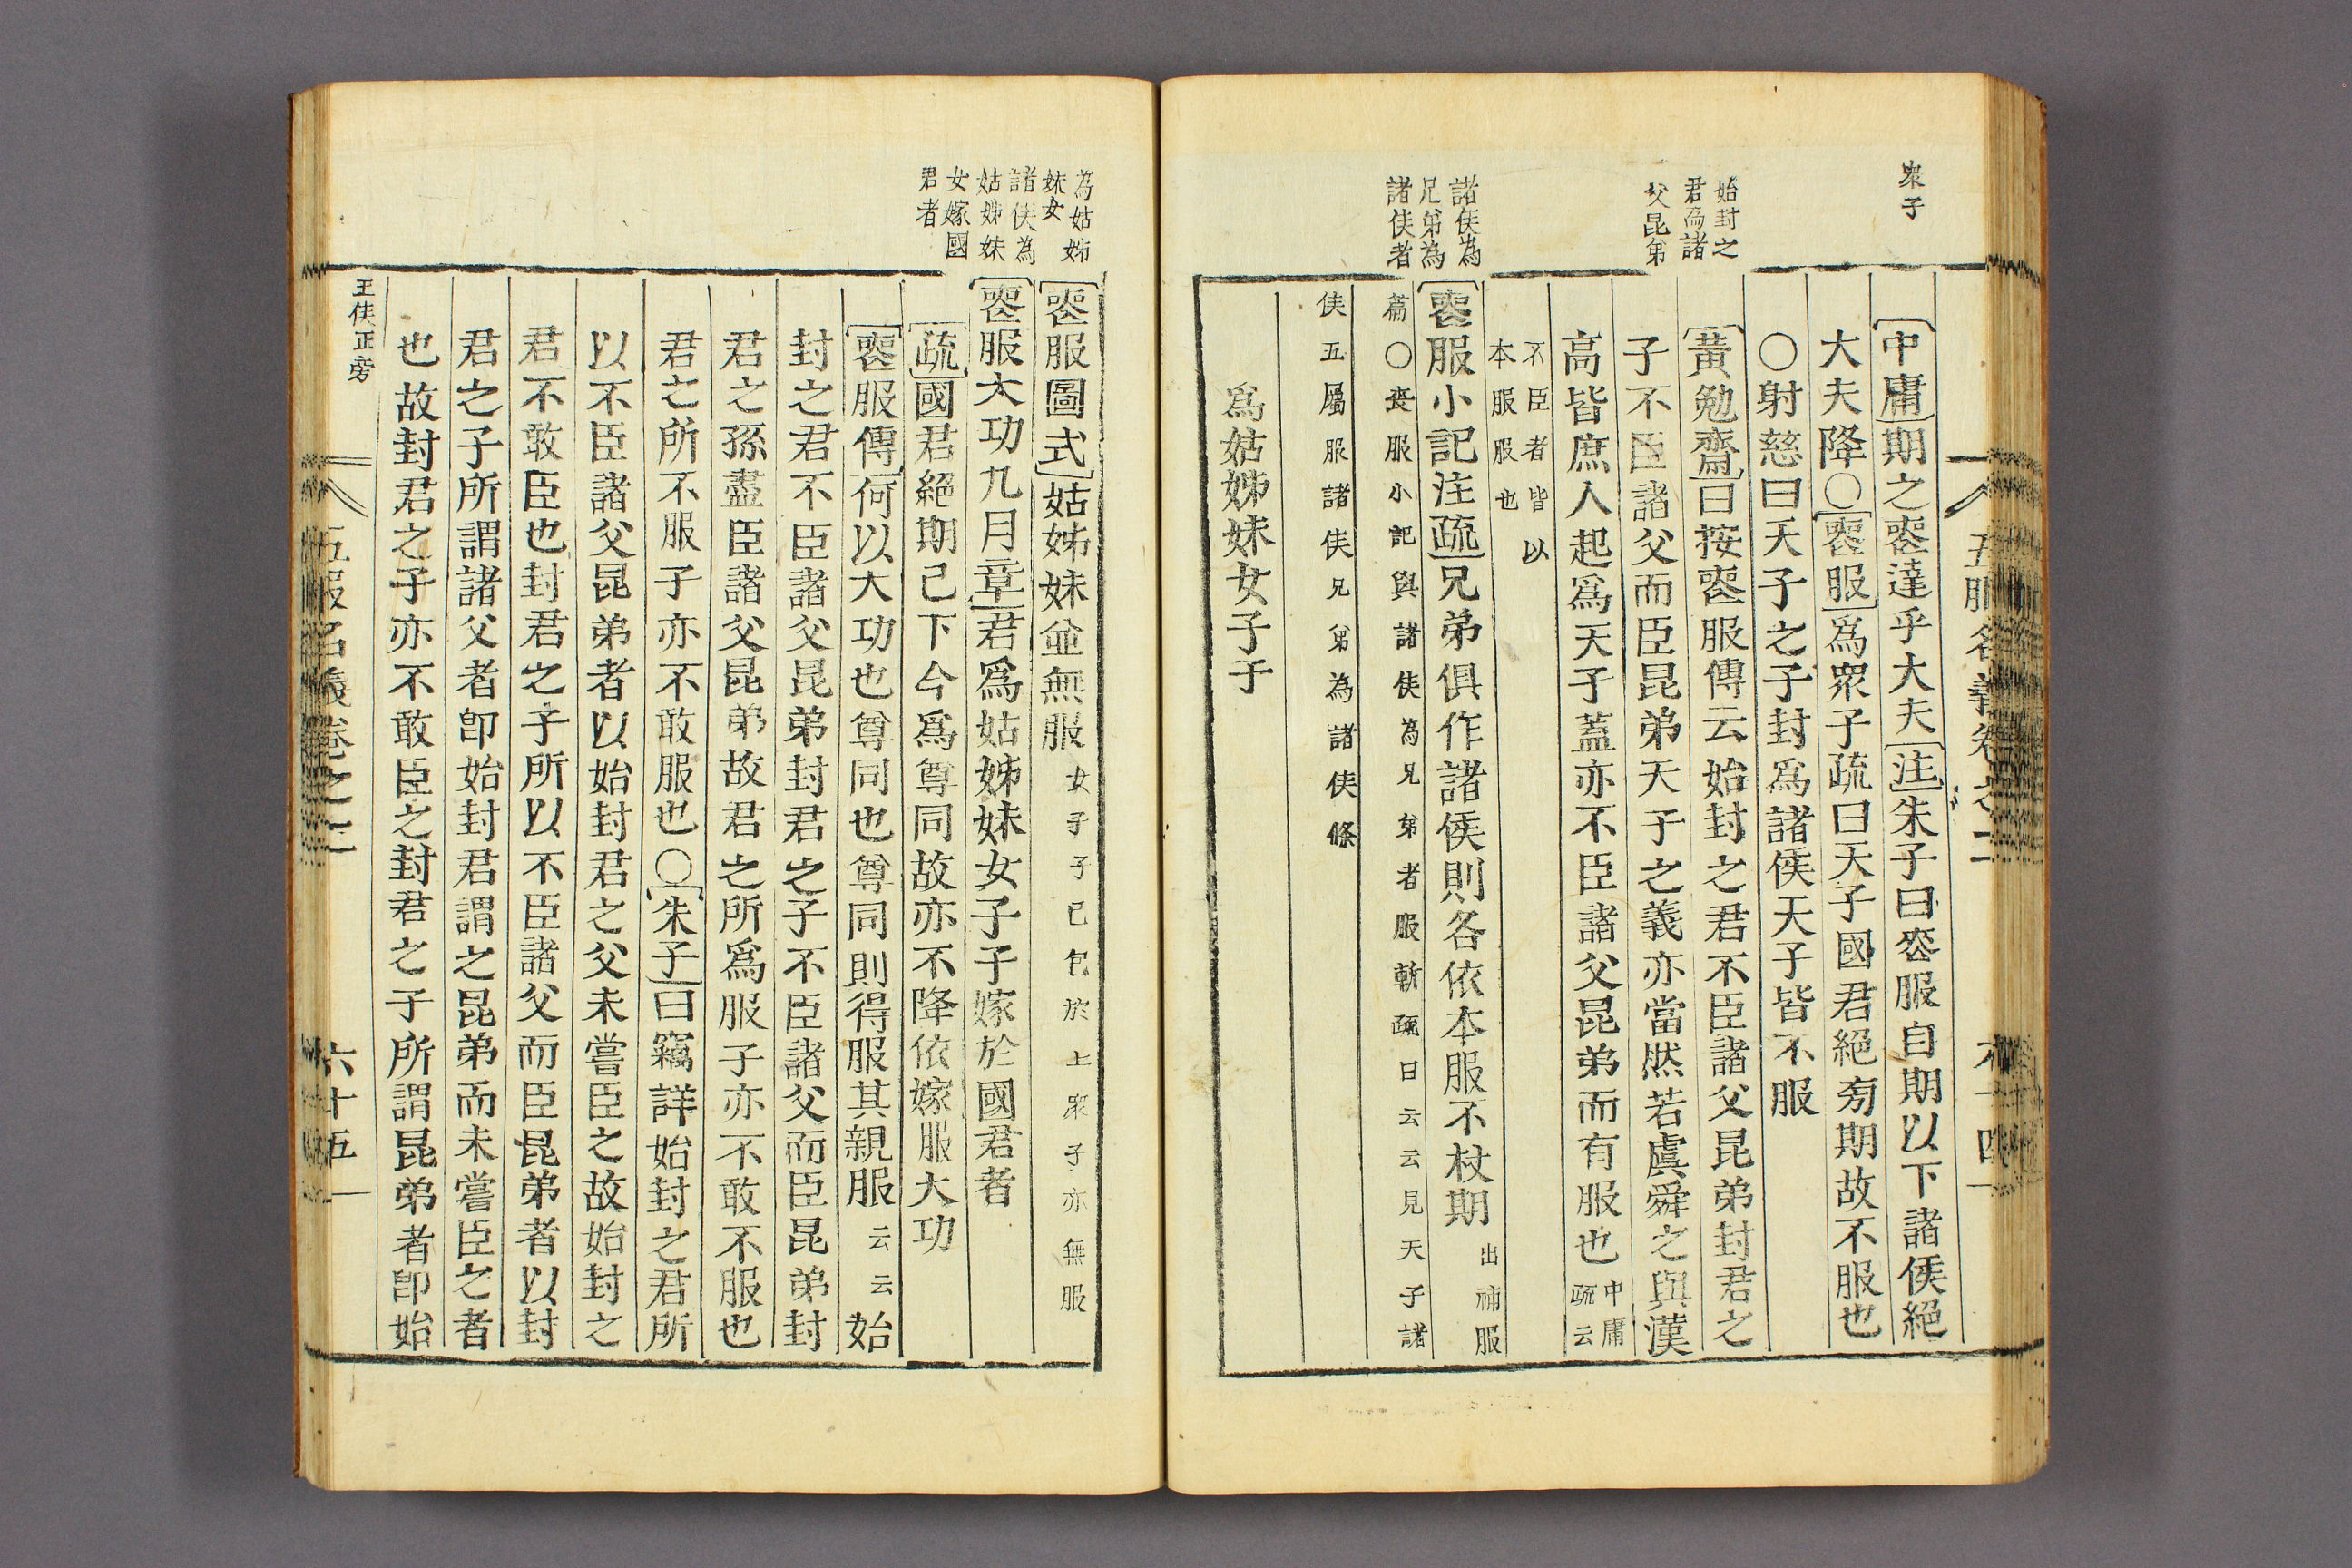 五服名義卷之二 六十四
衆子
中庸期之喪達乎大夫注朱子曰喪服自期以下諸侯絕
大夫降○喪服爲衆子疏曰天子國君絕旁期故不服也
○射慈曰天子之子封爲諸侯天子皆不服
始封之
君爲諸
父昆弟
黃勉齋曰按喪服傳云始封之君不臣諸父昆弟封君之
子不臣諸父而臣昆弟天子之義亦當然若虞舜之與漢
高皆庶人起爲天子蓋亦不臣諸父昆弟而有服也中庸疏云
不臣者皆以
本服服也
諸侯為
兄弟為
諸侯者
喪服小記注疏兄弟俱作諸侯則各依本服不杖期出補服
篇○喪服小記與諸侯為兄弟者服斬疏曰云云見天子諸
侯五屬服諸侯兄弟為諸侯條
爲姑姊妹女子子
為姑姊
妹女
諸侯為
姑姊妹
女嫁國
君者
喪服圖式姑姊妹並無服女子子已包於上衆子亦無服
喪服大功九月章君爲姑姊妹女子子嫁於國君者
疏國君絕期已下今爲尊同故亦不降依嫁服大功
喪服傳何以大功也尊同也尊同則得服其親服云云始
封之君不臣諸父昆弟封君之子不臣諸父而臣昆弟封
君之孫盡臣諸父昆弟故君之所爲服子亦不敢不服也
君之所不服子亦不敢服也○朱子曰竊詳始封之君所
以不臣諸父昆弟者以始封君之父未嘗臣之故始封之
君不敢臣也封君之子所以不臣諸父而臣昆弟者以封
君之子所謂諸父者卽始封君謂之昆弟而未嘗臣之者
也故封君之子亦不敢臣之封君之子所謂昆弟者卽始
王侯正旁
五服名義卷之二 六十五